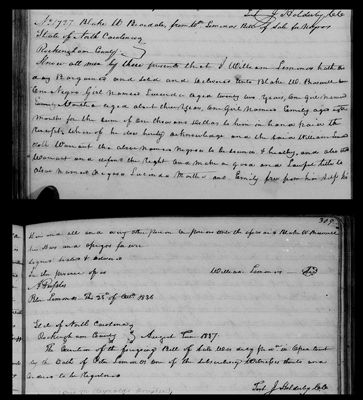 Test J Holderby Clk
No 1727. Blake W Brasdale from Wm Lemons Bill of Sale for Negroes
State of North Carolina
Rockingham County
Know all men by these presents that I William Lemmons hath this
day Bargained and sold and delivered unto Blake W
One Negro Girl named Lucinda aged twenty two years, One girl named
aged about three years, One Girl named Emily aged
month for the sum of One thousand dollars to him in hand paid the
receipt whereof he doth hereby acknowledge and the said William
doth Warrant the above named Negroes to be sound & healthy, and also
Warrant and defend the Right and make a good and Lawful title to
above named Negroes Lucinda and Emily free from him self his
heirs and all and every other person or persons unto the said Blake W
his heirs and assigns for ever
signed sealed & delivered
In the presence of us
William Lemmons Seal
A Peoples
Peter Lemons The 25th of Octr 1836
State of North Carolina
Rockingham County August Term 1837
The Execution of the foregoing Bill of Sale was duly proven in Open Court
by the Oath of Peter Lemons one of the subscribing Witnesses thereto and
ordered to be Registered
Test J Holderby Clk